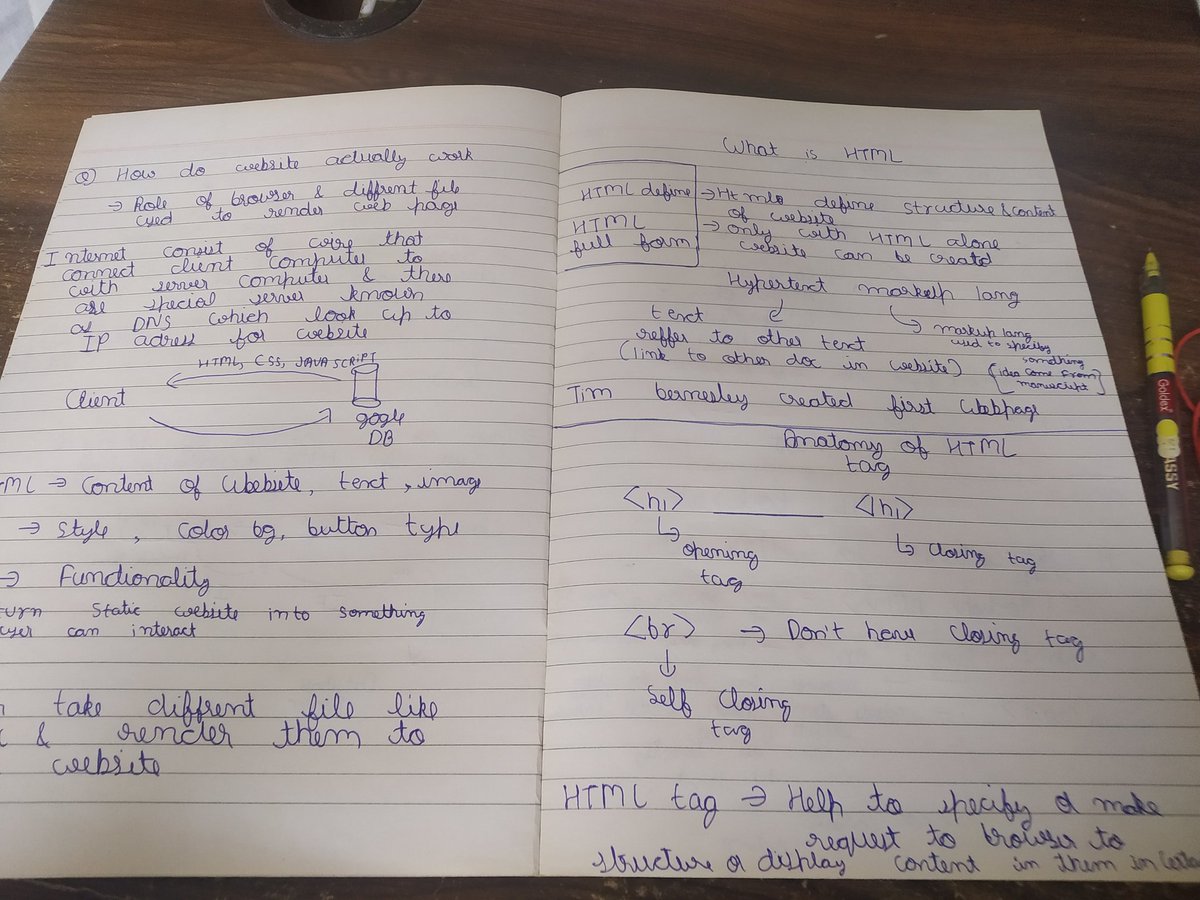 Q) How do website actually work
→ Role of browser & diffrent file
used to render web page
Internet consist of wire that
connect client computer to
with server computer & there
are special server known
as DNS which look up to
IP adress for website
HTML, CSS, JAVASCRIPT
Client
google
DB
ML → Content of Website, text, image
→ Style, color bg, button type
→ Functionality
urn Static website in to something
user can interact
take diffrent file like
& render them to
website
What is HTML
HTML define
HTML
full form
→ Html define structure & content
of website
→ only with HTML alone
website can be creatd
Hypertext markup lang
text
reffer to other text
(link to other doc in website)
markup lang
used to specify
something
(idea come from
manuscript)
Tim bernesley created first Webpage
Anatomy of HTML
tag
<h1> ______ <h1>
opening
tag
closing tag
<br> → Don't have closing tag
Self closing
tag
HTML tag → Help to specify & make
request to browser to
structure or display content in them in